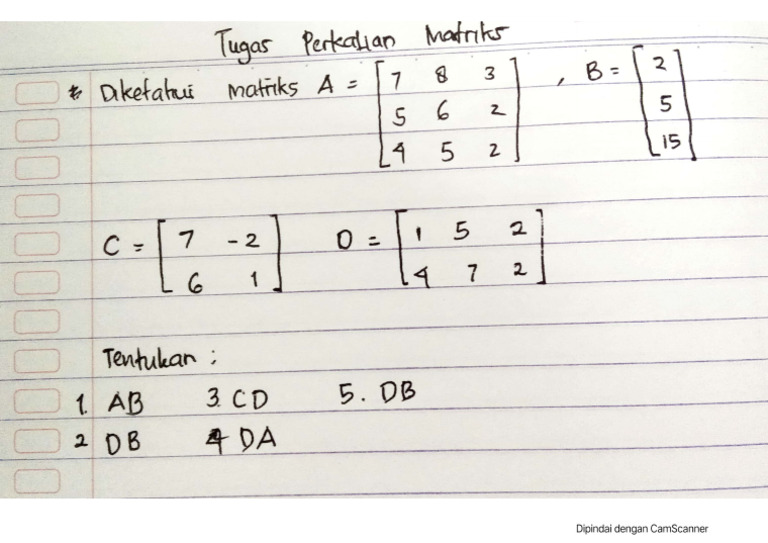 Tugas Perkalian Matriks
* Diketahui matriks A = [7 8 3 , B = [2
5 6 2 5
4 5 2] 15]
C = [7 -2 D = [1 5 2
6 1] 4 7 2]
Tentukan :
1. AB 3. CD 5. DB
2 DB 4 DA
Dipindai dengan CamScanner